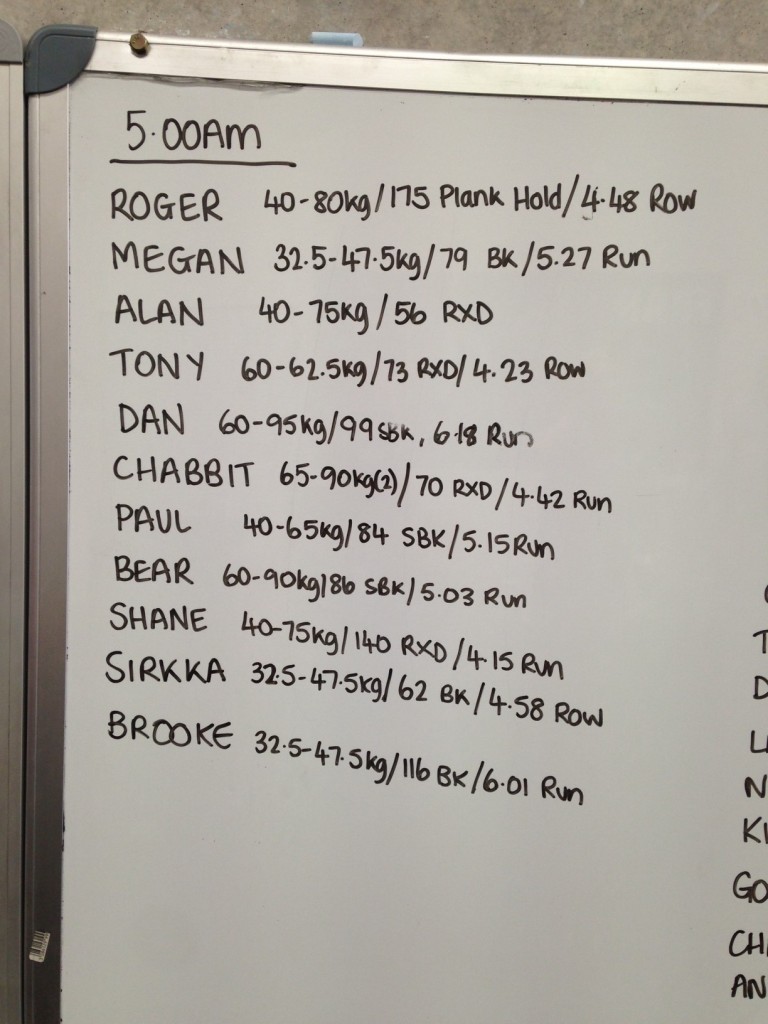 5.00AM
ROGER 40-80kg/175 Plank Hold/4.48 Row
MEGAN 32.5-47.5kg/79 BK/5.27 Run
ALAN 40-75kg/56 RXD
TONY 60-62.5kg/73 RXD/4.23 Row
DAN 60-95kg/99 SBK, 6.18 Run
CHABBIT 65-90kg(2)/70 RXD/4.42 Run
PAUL 40-65kg/84 SBK/5.15 Run
BEAR 60-90kg/86 SBK/5.03 Run
SHANE 40-75kg/140 RXD/4.15 Run
SIRKKA 32.5-47.5kg/62 BK/4.58 Row
BROOKE 32.5-47.5kg/116 BK/6.01 Run